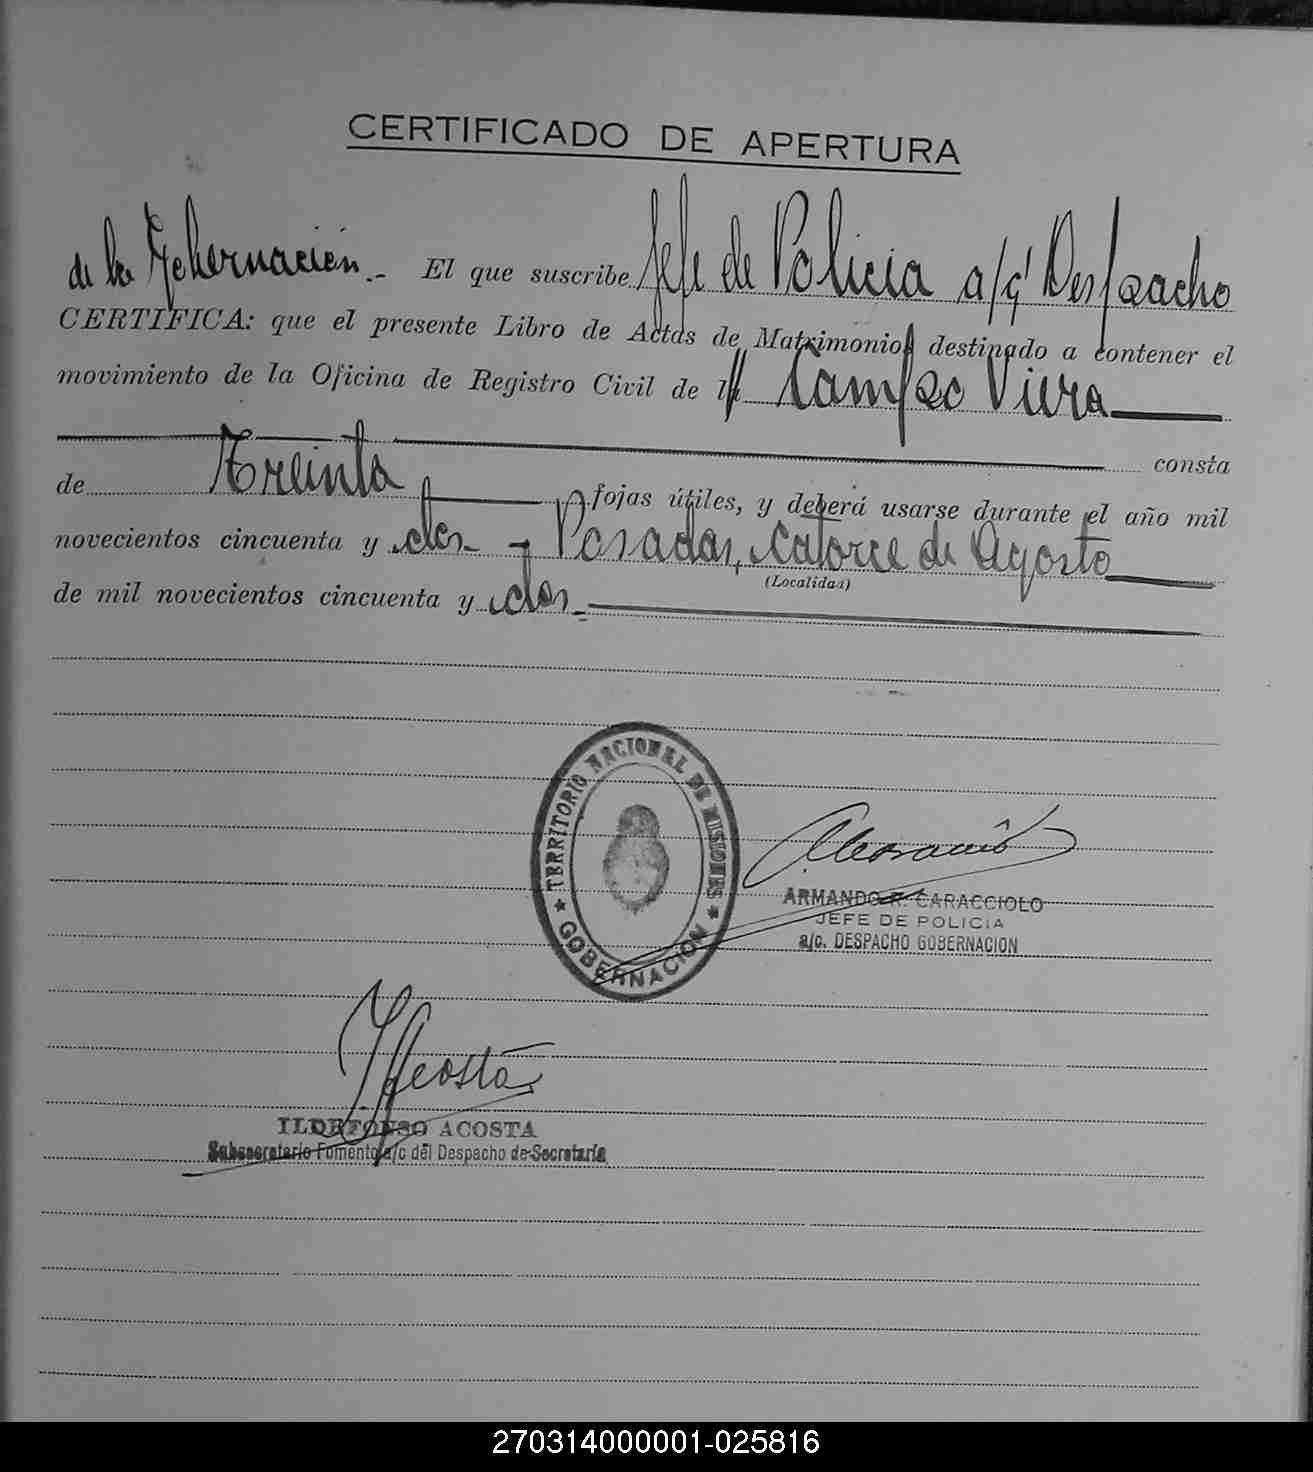 CERTIFICADO DE APERTURA
de la Gobernación.- El que suscribe Jefe de Policia a/c/ Despacho
CERTIFICA: que el presente Libro de Actas de Matrimonio destinado a contener el
movimiento de la Oficina de Registro Civil de Campo Viera
consta
de Treinta fojas útiles, y deberá usarse durante el año mil
novecientos cincuenta y dos.- Posadas, catorce de Agosto
(Localidad)
de mil novecientos cincuenta y dos.-
★ TERRITORIO NACIONAL DE MISIONES ★
GOBERNACION
ARMANDO R. CARACCIOLO
JEFE DE POLICIA
a/c. DESPACHO GOBERNACION
Acosta
ILDEFONSO ACOSTA
Subsecretario Fomento a/c del Despacho de Secretaría
270314000001-025816